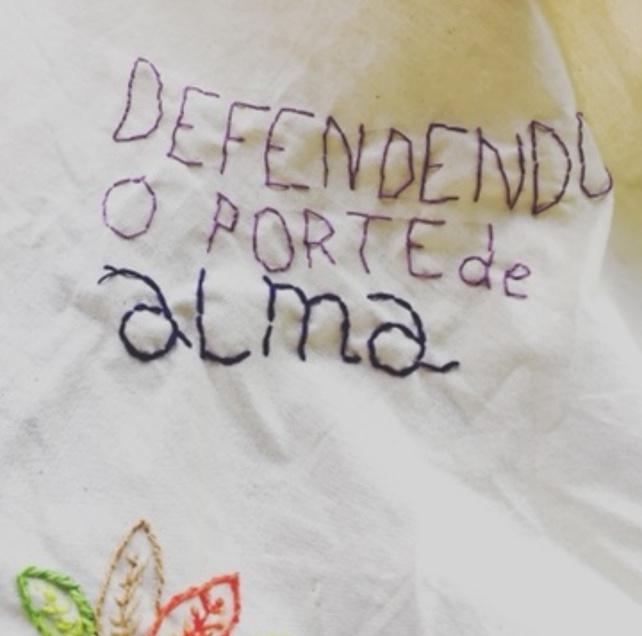 DEFENDENDO
O PORTE de
alma